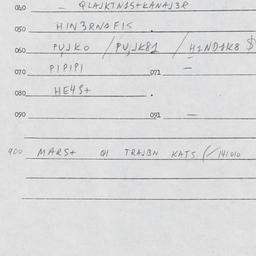 040 — QLAJKTNAS+KANAJ3R
050 HIN3RNAFIS .
060 PUJKO / PUJK81 / H1ND1K8 $
070 PIPIPI 071 —
080 HE4S+ .
090 091 —
900 MARS+ QI TRAJBN KATS / 141010